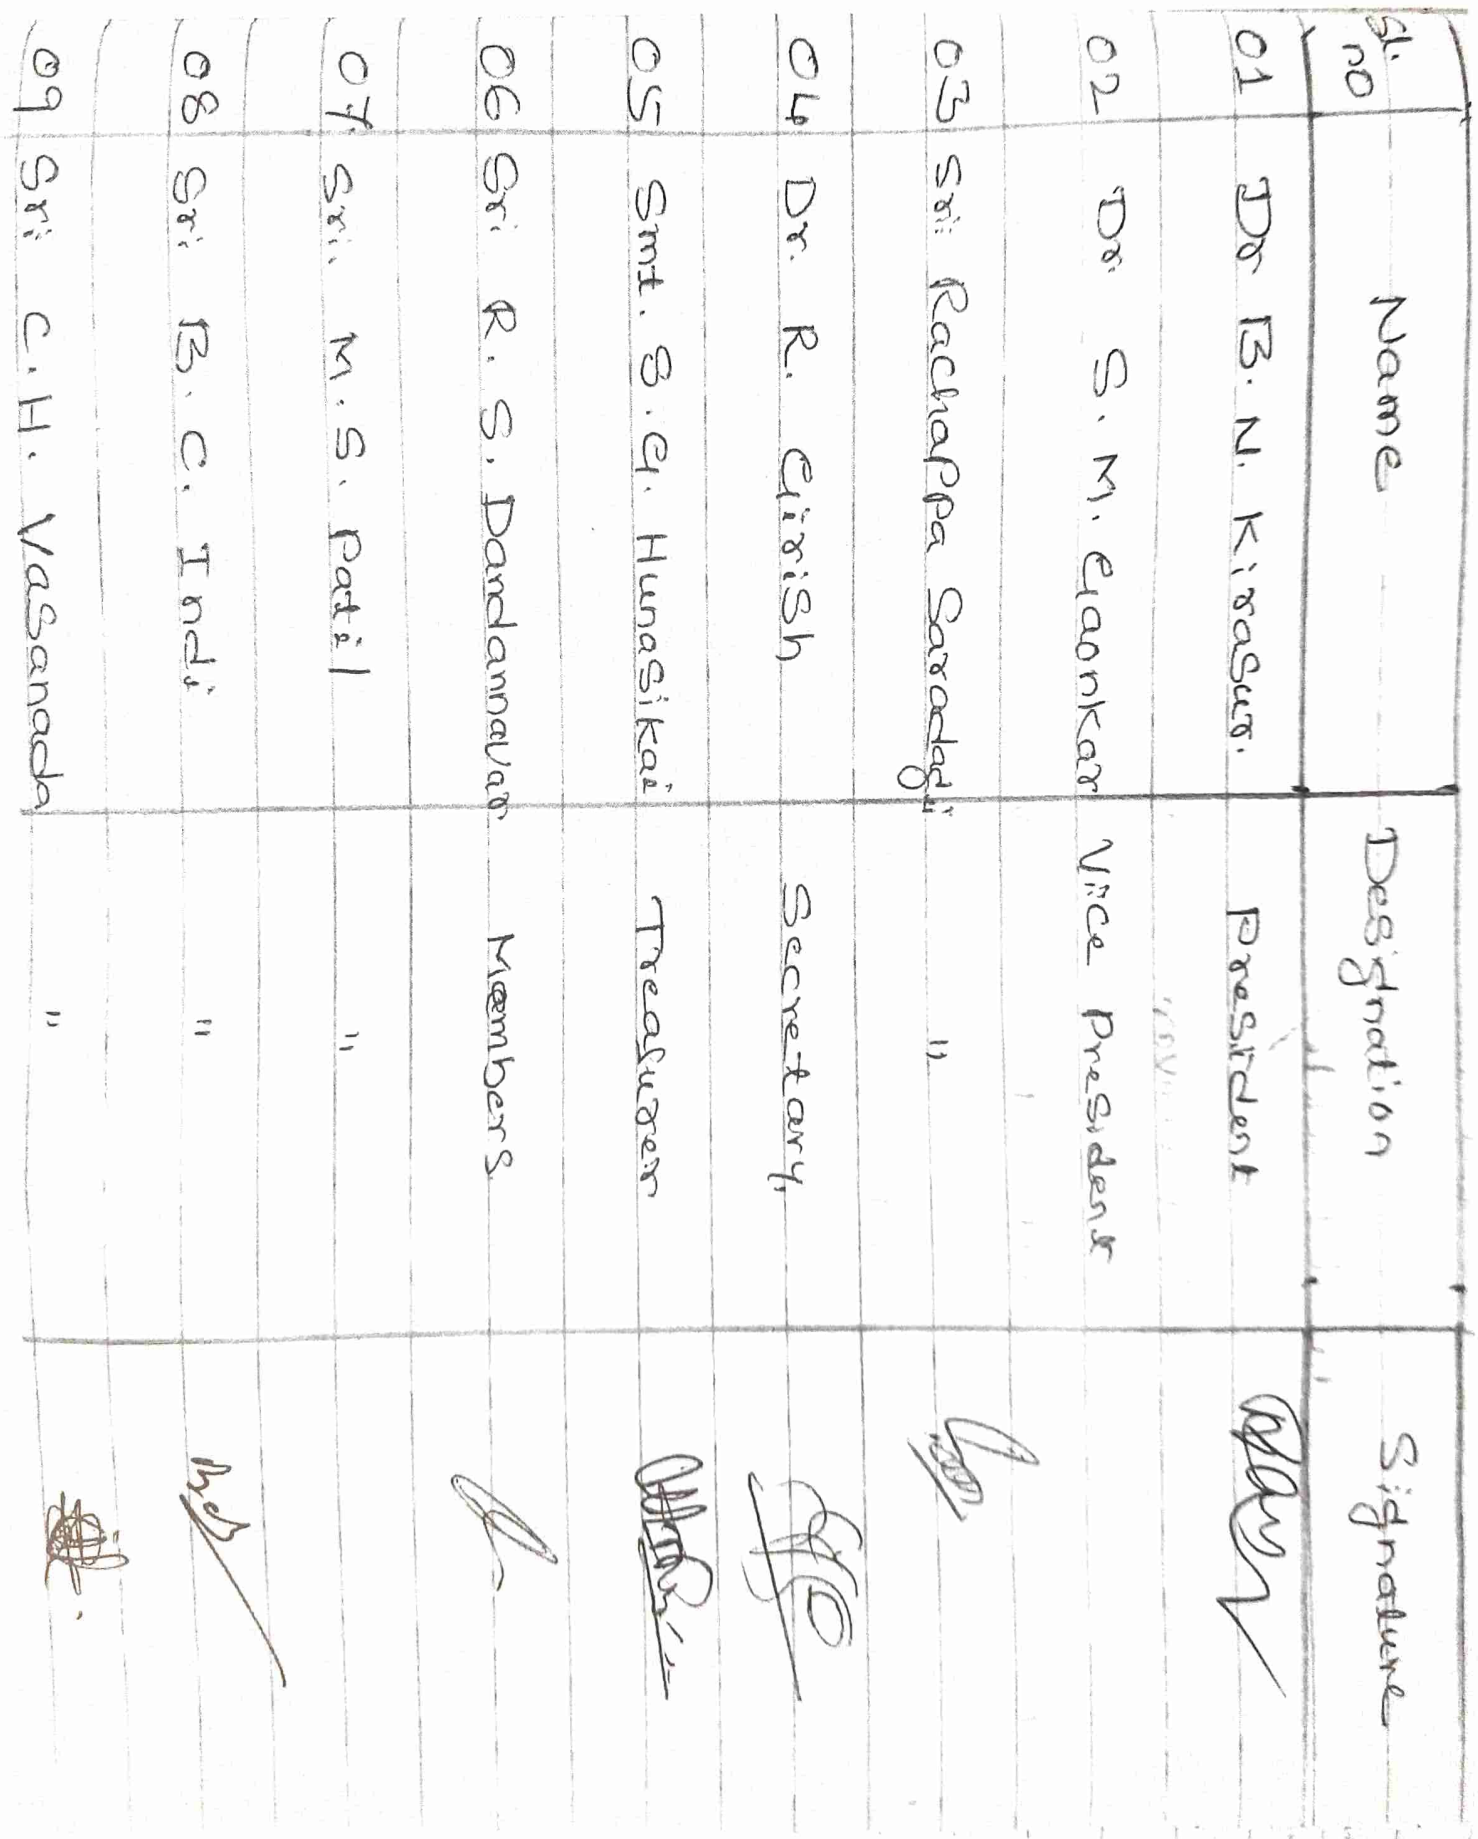 Sl. no Name Designation Signature
01 Dr B. N. Kirasur. President
02 Dr. S. M. Gaonkar Vice President
03 Sri Rachappa Saradagi "
04 Dr. R. Girish Secretary
05 Smt. S. G. Hunasikai Treasurer
06 Sri R. S. Dandannavar Members
07 Sri. M. S. Patil "
08 Sri B. C. Indi "
09 Sri C. H. Vasanada "